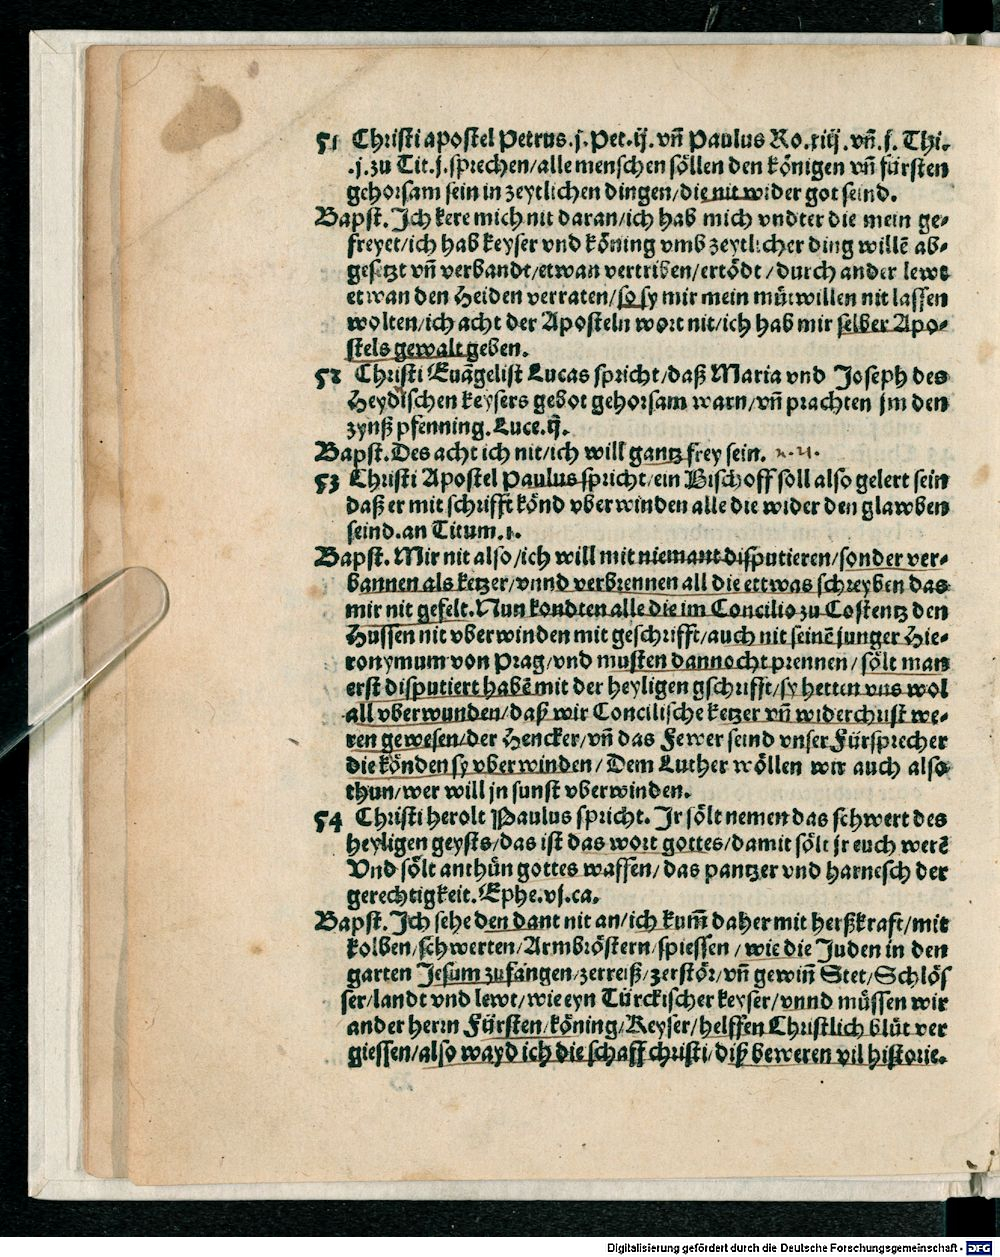 51 Christi apostel Petrus.j.Pet.ij.vñ Paulus Ro.xiij.vñ.j.Thi.
.j.zu Tit.j.sprechen/alle menschen söllen den königen vñ fürsten
gehorsam sein in zeytlichen dingen/die nit wider got seind.
Bapst. Ich kere mich nit daran/ich hab mich vndter die mein ge-
freyet/ich hab keyser vnd köning vmb zeytlicher ding willē ab-
gesetzt vñ verbandt/etwan vertriben/ertödt/durch ander lewt
etwan den Heiden verraten/so sy mir mein mütwillen nit lassen
wolten/ich acht der Aposteln wort nit/ich hab mir selber Apo-
stels gewalt geben.
52 Christi Euāgelist Lucas spricht/daß Maria vnd Joseph des
Heydischen keysers gebot gehorsam warn/vñ prachten jm den
zynß pfenning.Luce.ij.
Bapst. Des acht ich nit/ich will gantz frey sein.
53 Christi Apostel Paulus spricht/ein Bischoff soll also gelert sein
daß er mit schrifft könd vberwinden alle die wider den glawben
seind.an Titum.1.
Bapst. Mir nit also/ich will mit niemant disputieren/sonder ver-
bannen als ketzer/vnnd verbrennen all die ettwas schreyben das
mir nit gefelt. Nun kondten alle die im Concilio zu Costentz den
Hussen nit vberwinden mit geschrifft/auch nit seinē junger Hie-
ronymum von Prag/vnd musten dannocht prennen/sölt man
erst disputiert habē mit der heyligen gschrifft/sy hetten vns wol
all vberwunden/daß wir Concilische ketzer vñ widerchrist we-
ren gewesen/der Hencker/vñ das Fewer seind vnser Fürsprecher
die könden sy vberwinden/Dem Luther wöllen wir auch also
thun/wer will jn sunst vberwinden.
54 Christi herolt Paulus spricht. Ir sölt nemen das schwert des
heyligen geysts/das ist das wort gottes/damit sölt jr euch werē
Vnd sölt anthün gottes waffen/das pantzer vnd harnesch der
gerechtigkeit.Ephe.vj.ca.
Bapst. Ich sehe den dant nit an/ich kum̄ daher mit herßkraft/mit
kolben/schwerten/Armbröstern/spiessen/wie die Juden in den
garten Jesum zufangen/zerreiß/zerstör/vñ gewiñ Stet/Schlös
ser/landt vnd lewt/wie eyn Türckischer keyser/vnnd müssen wir
ander herrn Fürsten/köning/Keyser/helffen Christlich blüt ver
giessen/also wayd ich die schaff christi/diß beweren vil historie.
Digitalisierung gefördert durch die Deutsche Forschungsgemeinschaft - DFG